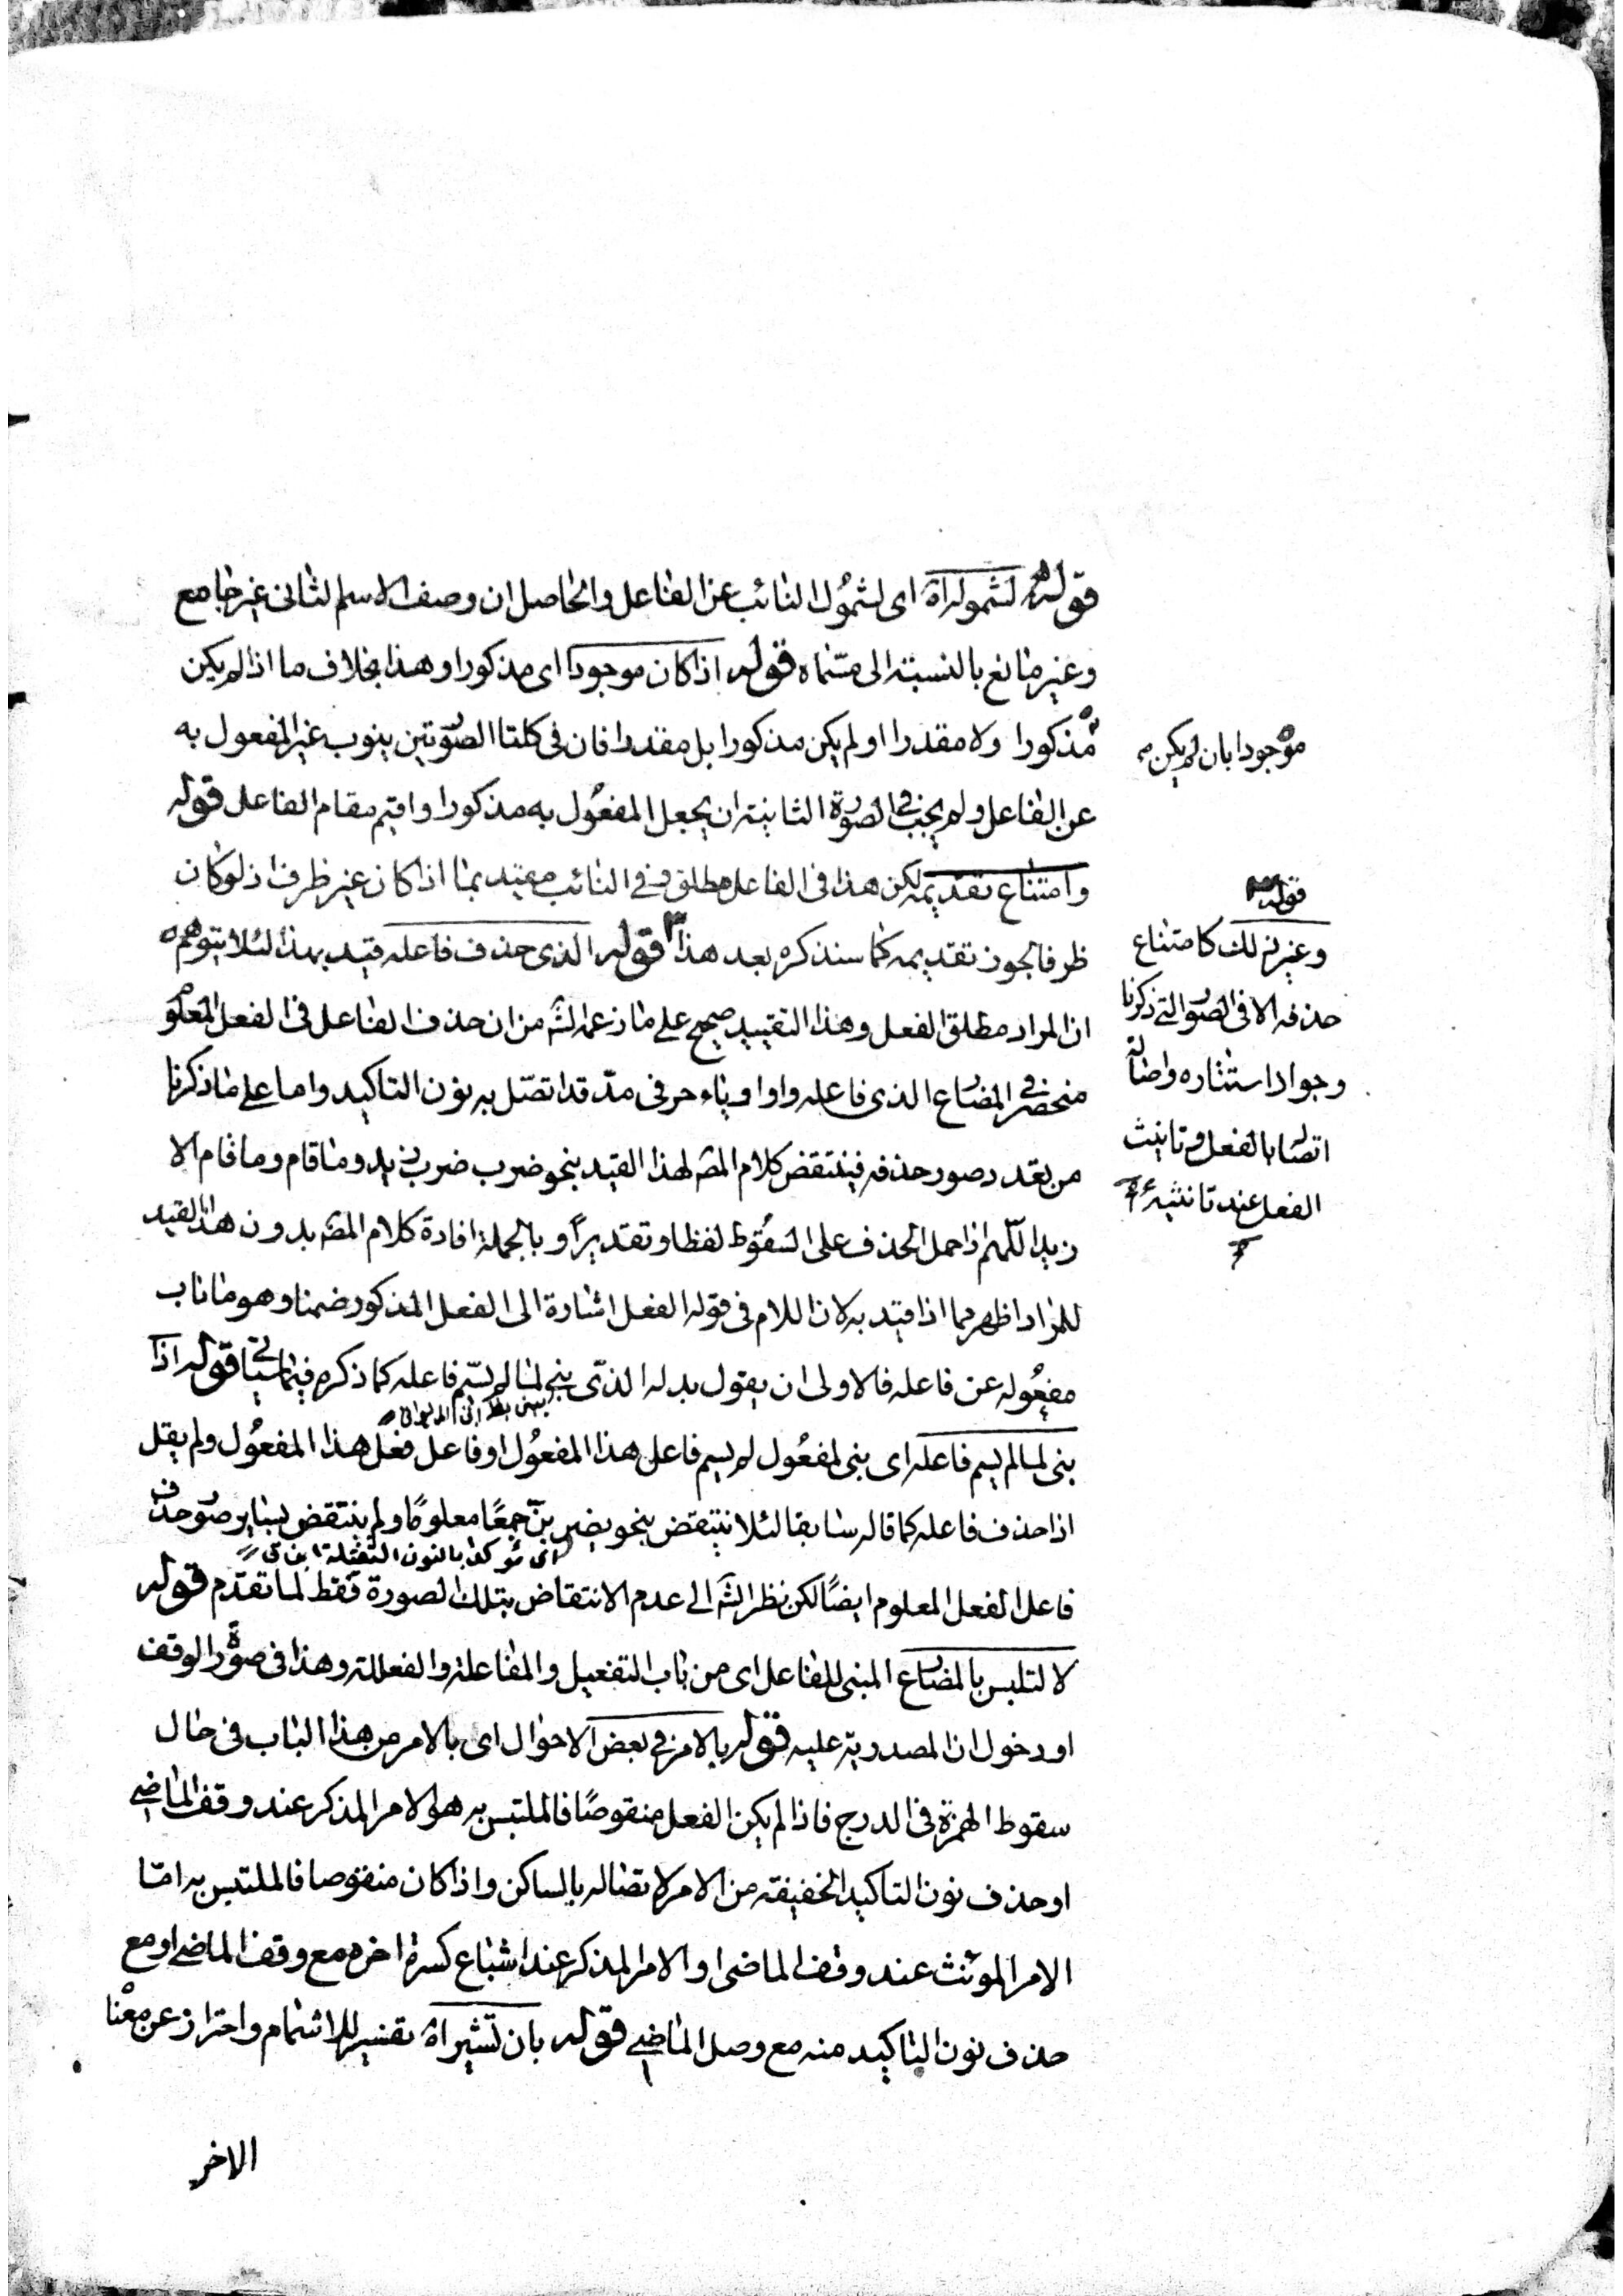 قوله لشموله اه اى لشمول النائب عن الفاعل والحاصل ان وصف الاسم الثانى غير جامع
وغير مانع بالنسبة الى مسماه قوله اذا كان موجودا اى مذكورا وهذا بخلاف ما اذا لم يكن
مذكورا ولا مقدرا او لم يكن مذكورا بل مقدرا فان فى كلتا الصورتين ينوب غير المفعول به
موجودا بان لم يكن
عن الفاعل ولم يجب فى الصورة الثانية ان يجعل المفعول به مذكورا واقيم مقام الفاعل قوله
وامتناع تقديمه لكن هذا فى الفاعل مطلق وفى النائب مقيد بما اذا كان غير ظرف اذ لو كان
ظرفا يجوز تقديمه كما سنذكره بعد هذا قوله الذى حذف فاعله قيد بهذا لئلا يتوهم
ان المراد مطلق الفعل وهذا التقييد صحيح على ما زعمه الشه من ان حذف الفاعل فى الفعل المعلوم
منحصر فى المضارع الذى فاعله واوا وياء حرفى مد قد اتصل به نون التاكيد واما على ما ذكرنا
من تعدد صور حذفه فينتقض كلام المصه لهذا القيد بنحو ضرب ضرب زيد وما قام وما قام الا
زيد اللهم اذا حمل الحذف على السقوط لفظا وتقديرًا وبالجملة افادة كلام المصه بدون هذا القيد
للمراد اظهر مما اذا قيد به لان اللام فى قوله الفعل اشارة الى الفعل المذكور ضمنا وهو ما ناب
مفعوله عن فاعله فالاولى ان يقول بدله الذى بنى لما لم يسم فاعله كما ذكره فيما سياتى قوله اذا
بنى لما لم يسم فاعله اى بنى لمفعول لم يسم فاعل هذا المفعول او فاعل فعل هذا المفعول ولم يقل
اذا حذف فاعله كما قاله سابقا لئلا ينتقض بنحو يضربن جمعًا معلومًا ولم ينتقض بساير صور حذف
اى مؤكدا بالنون الثقيلة
فاعل الفعل المعلوم ايضًا لكن نظر الشه الى عدم الانتقاض بتلك الصورة فقط لما تقدم قوله
لا لتلبس بالمضارع المبنى للفاعل اى من باب التفعيل والمفاعلة والفعللة وهذا فى صورة الوقف
او دخول ان المصدرية عليه قوله بالامر فى بعض الاحوال اى بالامر من هذا الباب فى حال
سقوط الهمزة فى الدرج فاذا لم يكن الفعل منقوصًا فالملتبس به هو الامر المذكر عند وقف الماضى
او حذف نون التاكيد الخفيفة من الامر لاتصاله بالساكن واذا كان منقوصا فالملتبس به اما
الامر المونث عند وقف الماضى او الامر المذكر عند اشباع كسرة اخره مع وقف الماضى او مع
حذف نون التاكيد منه مع وصل الماضى قوله بان تشير اه تفسير للاشمام واحتراز عن معنا
الاخر
قوله
وغير ذلك كامتناع
حذفه الا فى الصور التى ذكرنا
وجواز استتاره واصالة
اتصاله بالفعل وتانيث
الفعل عند تانيثه